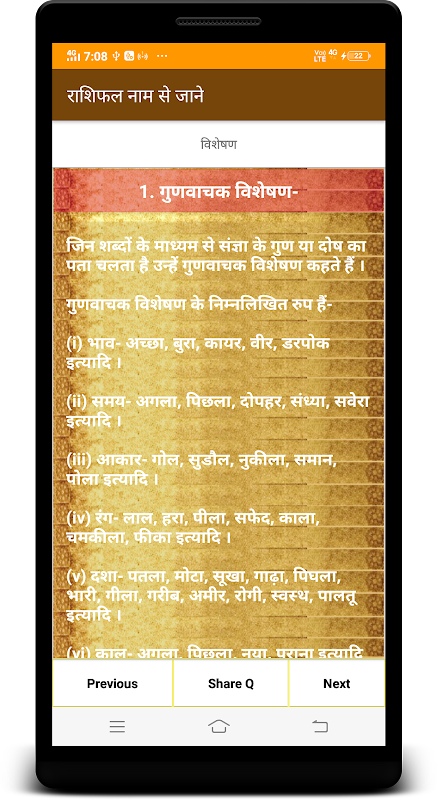 4G 7:08 ...
Vo) LTE 4G 22
राशिफल नाम से जाने
विशेषण
1. गुणवाचक विशेषण-
जिन शब्दों के माध्यम से संज्ञा के गुण या दोष का
पता चलता है उन्हें गुणवाचक विशेषण कहते हैं ।
गुणवाचक विशेषण के निम्नलिखित रुप हैं-
(i) भाव- अच्छा, बुरा, कायर, वीर, डरपोक
इत्यादि ।
(ii) समय- अगला, पिछला, दोपहर, संध्या, सवेरा
इत्यादि ।
(iii) आकार- गोल, सुडौल, नुकीला, समान,
पोला इत्यादि ।
(iv) रंग- लाल, हरा, पीला, सफेद, काला,
चमकीला, फीका इत्यादि ।
(v) दशा- पतला, मोटा, सूखा, गाढ़ा, पिघला,
भारी, गीला, गरीब, अमीर, रोगी, स्वस्थ, पालतू
इत्यादि ।
(vi) काल- अगला, पिछला, नया, पुराना इत्यादि
Previous
Share Q
Next